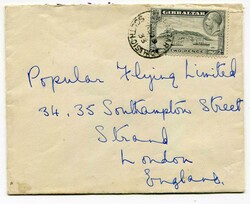 GIBRALTAR
TWO PENCE
Popular Flying Limited
34, 35 Southampton Street
Strand
London
England.